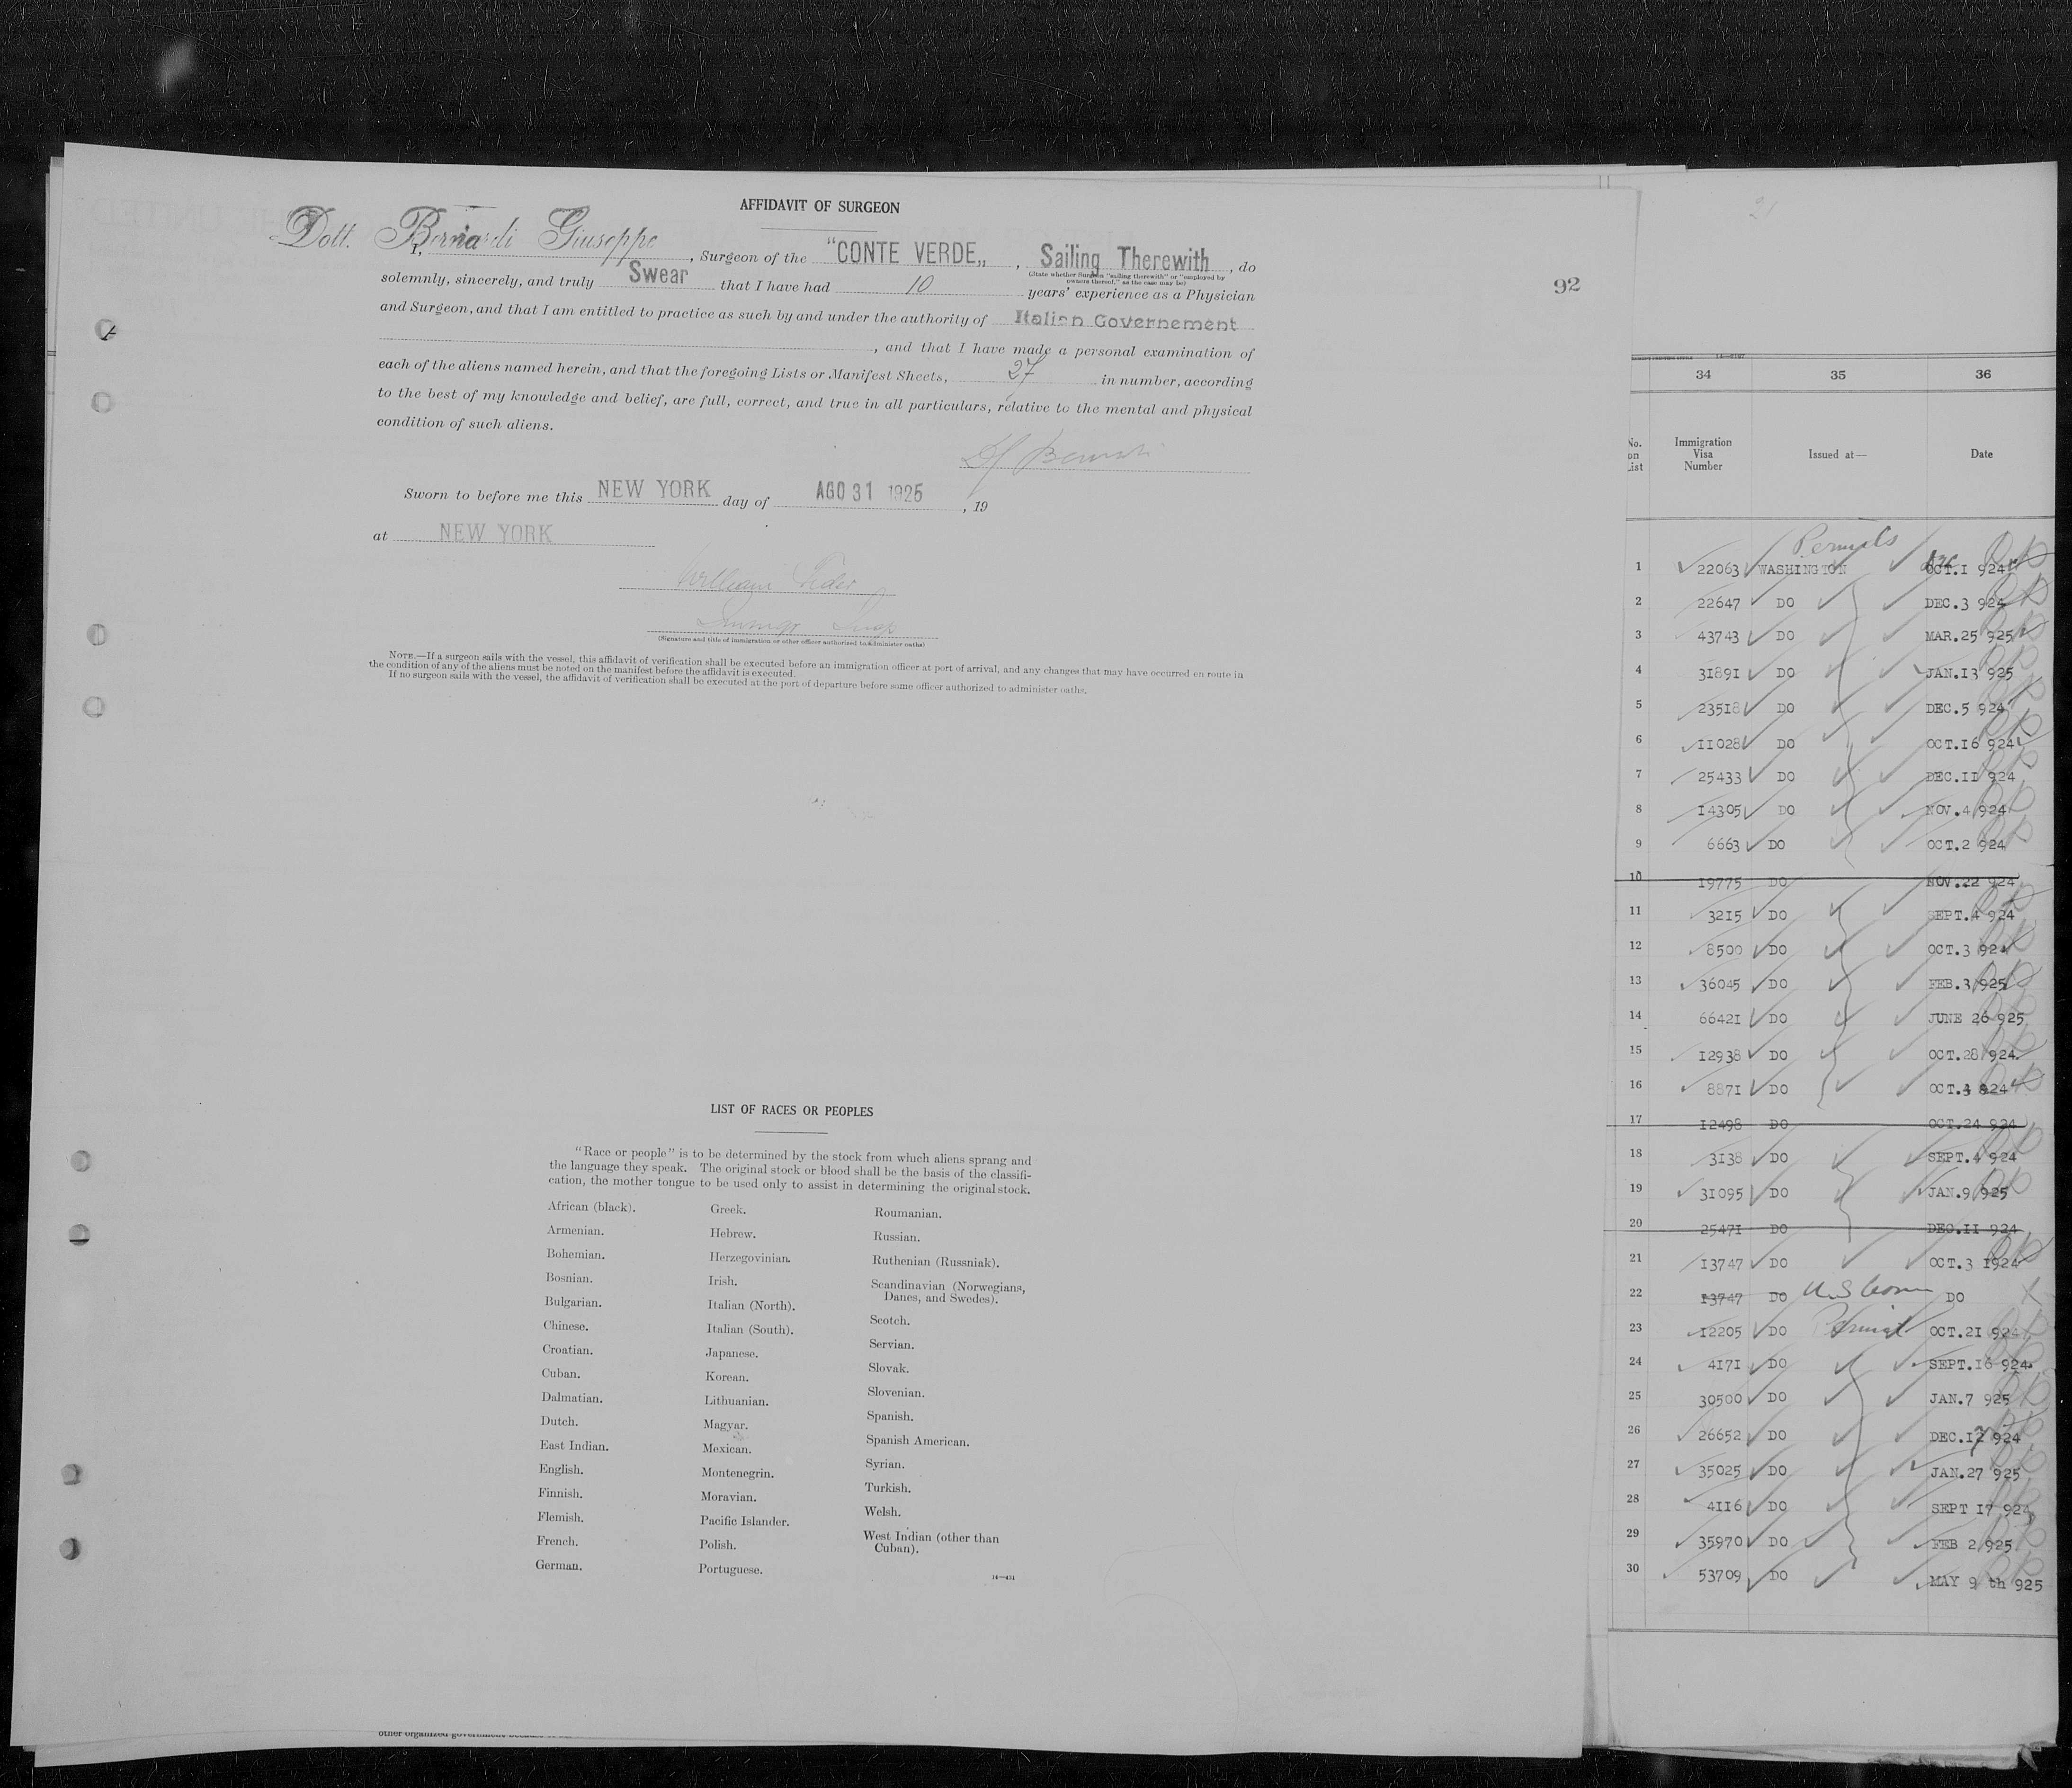 AFFIDAVIT OF SURGEON
Dott. Bernardi Giuseppe
I, , Surgeon of the "CONTE VERDE„ , Sailing Therewith , do
(State whether Surgeon "sailing therewith" or "employed by
owners thereof," as the case may be)
solemnly, sincerely, and truly Swear that I have had 10 years' experience as a Physician
and Surgeon, and that I am entitled to practice as such by and under the authority of Italian Governement
, and that I have made a personal examination of
each of the aliens named herein, and that the foregoing Lists or Manifest Sheets, 27 in number, according
to the best of my knowledge and belief, are full, correct, and true in all particulars, relative to the mental and physical
condition of such aliens.
Sworn to before me this NEW YORK day of AGO 31 1925 , 19
at NEW YORK
William
(Signature and title of immigration or other officer authorized to administer oaths)
NOTE.—If a surgeon sails with the vessel, this affidavit of verification shall be executed before an immigration officer at port of arrival, and any changes that may have occurred en route in
the condition of any of the aliens must be noted on the manifest before the affidavit is executed.
If no surgeon sails with the vessel, the affidavit of verification shall be executed at the port of departure before some officer authorized to administer oaths.
LIST OF RACES OR PEOPLES
"Race or people" is to be determined by the stock from which aliens sprang and
the language they speak. The original stock or blood shall be the basis of the classifi-
cation, the mother tongue to be used only to assist in determining the original stock.
African (black).
Armenian.
Bohemian.
Bosnian.
Bulgarian.
Chinese.
Croatian.
Cuban.
Dalmatian.
Dutch.
East Indian.
English.
Finnish.
Flemish.
French.
German.
Greek.
Hebrew.
Herzegovinian.
Irish.
Italian (North).
Italian (South).
Japanese.
Korean.
Lithuanian.
Magyar.
Mexican.
Montenegrin.
Moravian.
Pacific Islander.
Polish.
Portuguese.
Roumanian.
Russian.
Ruthenian (Russniak).
Scandinavian (Norwegians,
Danes, and Swedes).
Scotch.
Servian.
Slovak.
Slovenian.
Spanish.
Spanish American.
Syrian.
Turkish.
Welsh.
West Indian (other than
Cuban).
14—431
other organized government because of
92
21
34 35 36
No. on List Immigration Visa Number Issued at— Date
Permits
1 22063 WASHINGTON OCT.1 924
2 22647 DO DEC.3 924
3 43743 DO MAR.25 925
4 31891 DO JAN.13 925
5 23518 DO DEC.5 924
6 11028 DO OCT.16 924
7 25433 DO DEC.11 924
8 14305 DO NOV.4 924
9 6663 DO OCT.2 924
10 19775 DO NOV.22 924
11 3215 DO SEPT.4 924
12 8500 DO OCT.3 924
13 36045 DO FEB.3 925
14 66421 DO JUNE 26 925
15 12938 DO OCT.28 924
16 8871 DO OCT. 924
17 12498 DO OCT.24 924
18 3138 DO SEPT.4 924
19 31095 DO JAN.9 925
20 25471 DO DEC.11 924
21 13747 DO OCT.3 1924
22 13747 DO U.S born DO X
23 12205 DO Permit OCT.21 924
24 4171 DO SEPT.16 924
25 30500 DO JAN.7 925
26 26652 DO DEC.17 924
27 35025 DO JAN.27 925
28 4116 DO SEPT 17 924
29 35970 DO FEB 2 925
30 53709 DO MAY 9 th 925